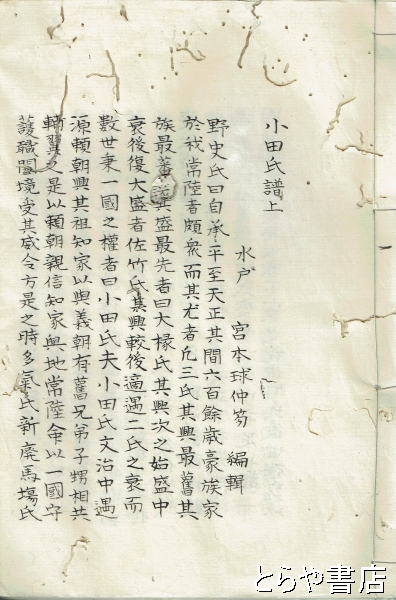 小田氏譜上
水戸 宮本球仲笏 編輯
野史氏曰自承平至天正其間六百餘歳豪族家
於我常陸者頗衆而其尤者凡三氏其興最舊其
族最蕃其盛最先者曰大掾氏其興次之始盛中
衰後復大盛者佐竹氏其興較後適遇二氏之衰而
數世秉一國之權者曰小田氏夫小田氏文治中遇
源頼朝興其祖知家以與義朝有舊兄弟子甥相共
輔翼之是以頼朝親信知家與地常陸命以一國守
護職闔境受其威令方是之時多氣氏新廃馬場氏
とらや書店